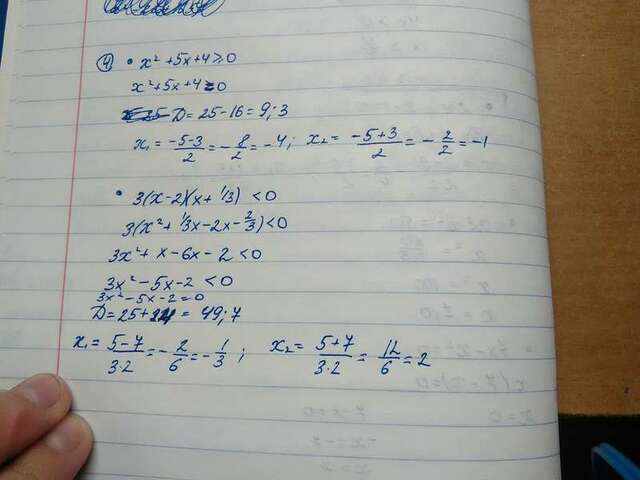 ④ • x² + 5x + 4 ≥ 0
x² + 5x + 4 = 0
D = 25 - 16 = 9; 3
x₁ = (-5-3)/2 = -8/2 = -4; x₂ = (-5+3)/2 = -2/2 = -1
• 3(x-2)(x + 1/3) < 0
3(x² + 1/3x - 2x - 2/3) < 0
3x² + x - 6x - 2 < 0
3x² - 5x - 2 < 0
3x² - 5x - 2 = 0
D = 25 + 24 = 49; 7
x₁ = (5-7)/(3·2) = -2/6 = -1/3; x₂ = (5+7)/(3·2) = 12/6 = 2